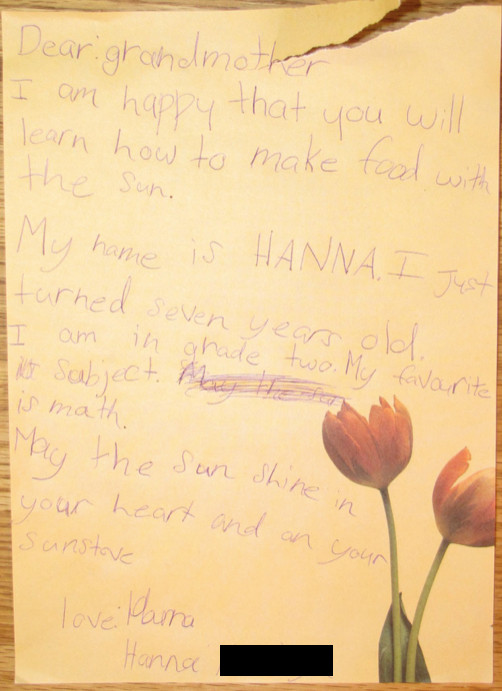 Dear: grandmother
I am happy that you will
learn how to make food with
the sun.
My name is HANNA. I just
turned seven years old.
I am in grade two. My favourite
subject.
is math.
May the sun shine in
your heart and on your
sunstove
love: Hanna
Hanna